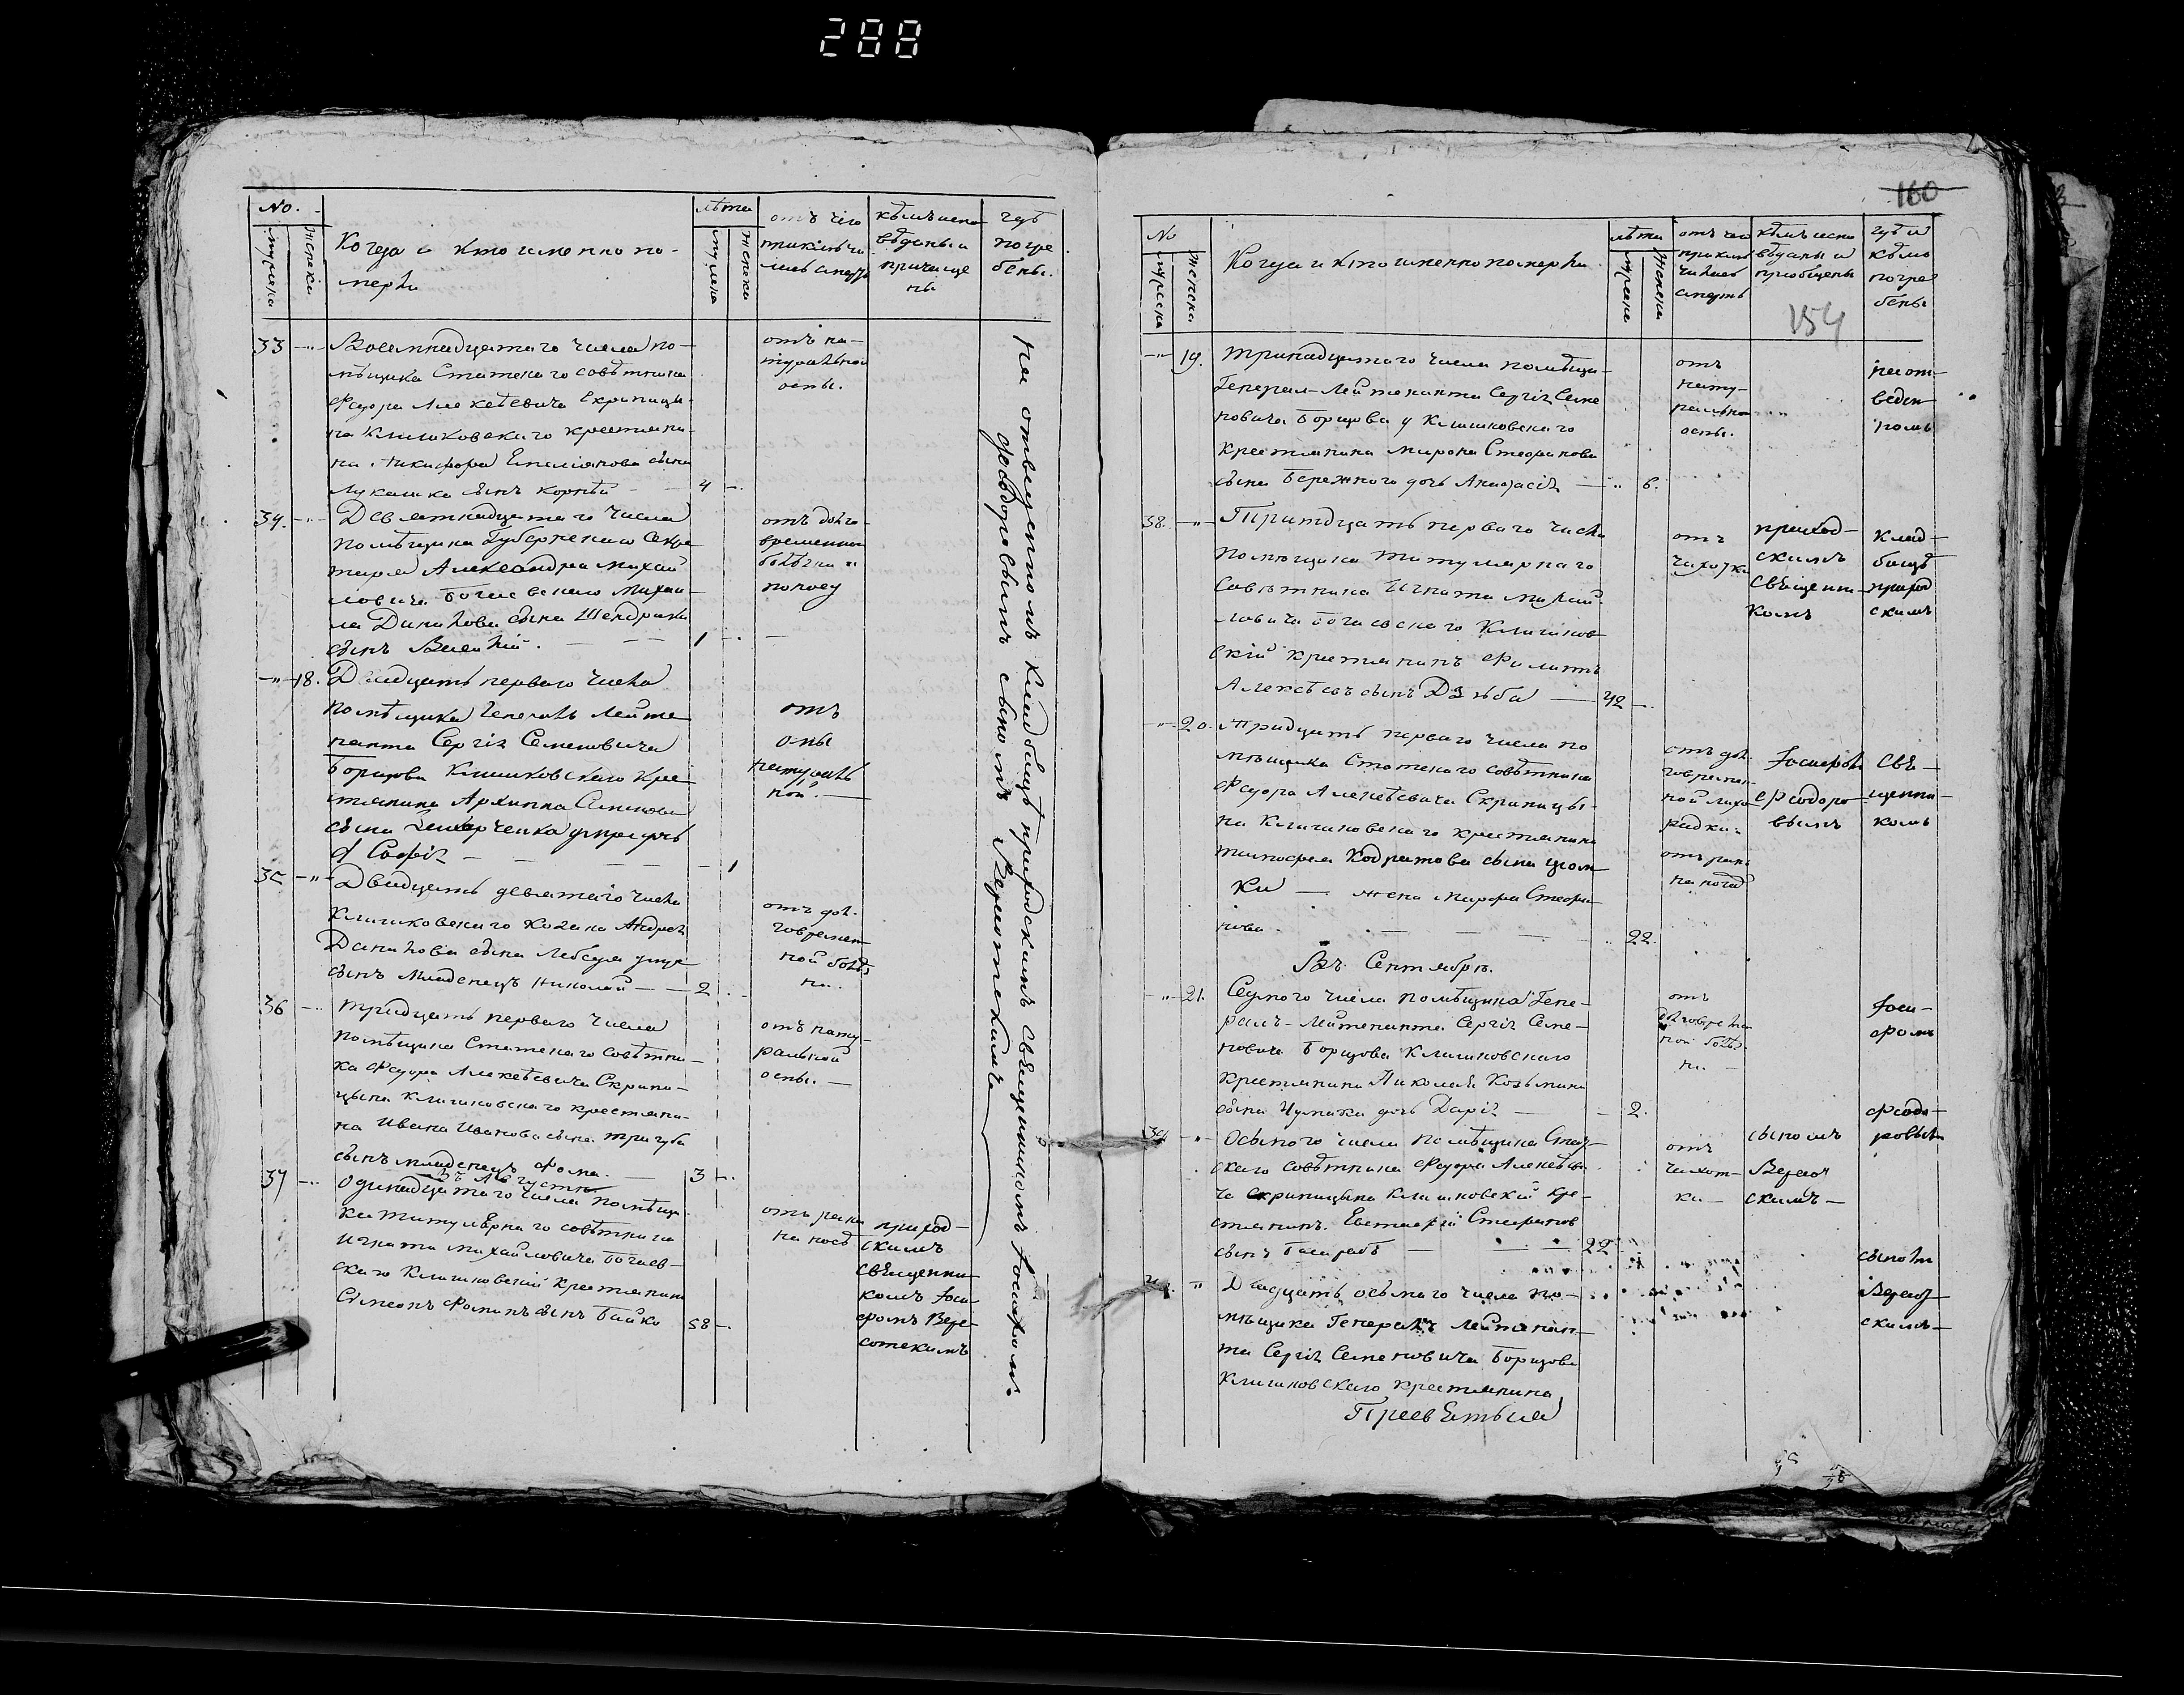 288
No.
лѣта
мужеска
женска
Когда и кто именно по-
мерли
мужеска
женска
отъ чего
приключи
лась смерть
кѣмъ испо
вѣданы и
причаще
ны
гдѣ
погре
бены.
33
Восемнадцатаго числа по-
мѣщика Статскаго совѣтника
Федора Алексѣевича Скрипицы-
на Клишковскаго крестьяни-
на Никифора Емелiянова сына
сынъ Корнѣй
4
отъ на-
туральной
оспы.
34.
Девятнадцатаго числа
помѣщика Губернскаго Секре
таря Александра Михай
ловича Михаи-
ла Данилова сына Шендрика
сынъ Василiй.
1
отъ долго
временной
болѣзни
18.
Двадцать перваго числа
помѣщика Генералъ Лейте
нанта Сергiя Семеновича
Борщова Клишковскаго кре
стьянина Архиппа Семенова
сына дочь
Софiя
1
отъ
оспы
натураль
ной.
35
Двадцать девятаго числа
Клишковскаго козака Андрея
Данилова сына Лебедя
сынъ младенецъ Николай
2
отъ дол-
говремен
ной болѣз
ни.
36
Тридцать перваго числа
Помѣщика Статскаго совѣтни-
ка Федора Алексѣевича Скрипи-
цына Клишковскаго крестьяни-
на Ивана Иванова сына Тригуба
сынъ младенецъ Фома.
3
отъ нату-
ральной
оспы.
Въ Августѣ
37
Одинадцатаго числа помѣщи
ка титулярнаго совѣтника
Игната Михайловича
скаго Клишковскiй крестьянинъ
Симеонъ Фоминъ сынъ Байко
58
отъ раны
на
приход-
скимъ
священни
комъ Iоси
фомъ Вере-
сотскимъ
на отведенномъ кладбищѣ приходскимъ священникомъ Iосифомъ
Федоровымъ сыномъ Вересотскимъ
160
154
No
мужеска
женска
Когда и кто именно померли
лѣта
мужеска
женска
отъ чего
приклю
чилась
смерть
кѣмъ испо
вѣданы и
прiобщены
гдѣ и
кѣмъ
погре
бены
19.
Тринадцатаго числа помѣщи-
Генерал-Лейтенанта Сергiя Семе
новича Борщова у Клишковскаго
крестьянина Мирона Стефанова
сына Бережного дочь Анафасiя
6.
отъ
нату-
ральной
оспы.
на от-
веден-
номъ
38.
Тритдцать перваго числа
Помѣщика титулярнаго
совѣтника Игната Михай-
ловича Клишков
скiй крестьянинъ Филипъ
Алексѣевъ сынъ Дзюба
42
отъ
чахотки
приход-
скимъ
священни-
комъ
клад-
бищѣ
приход
скимъ
20.
Тридцать перваго числа по
мѣщика Статскаго совѣтника
Федора Алексѣевича Скрипицы-
на Клишковскаго крестьянина
Тимофея Кодратова сына
ки жена Марфа Стефа-
нова
22.
отъ дол-
говремен-
ной лихо
радки.
отъ раны
Iосифомъ
Федоро-
вымъ
свя-
щенни-
комъ
Въ Сентябрѣ.
21.
Седмого числа помѣщика Гене-
ралъ-Лейтенанта Сергiя Семе-
новича Борщова Клишковскаго
крестьянина Николая Козьмина
сына Чумака дочь Дарiя
2.
отъ
долговремен
ной болѣз
ни
Iоси-
фомъ
39
Осьмого числа помѣщика Стат-
скаго совѣтника Федора Алексѣеви
ча Скрипицына Клишковскiй кре-
стьянинъ Евстафiй Стефановъ
сынъ
22
отъ
чахот-
ки
сыномъ
Вересот
скимъ
Федо-
ровымъ
Двадцать осьмаго числа по-
мѣщика Генералъ Лейтенан-
та Сергiя Семеновича Борщова
Клишковскаго крестьянина
сыномъ
Вересот
скимъ